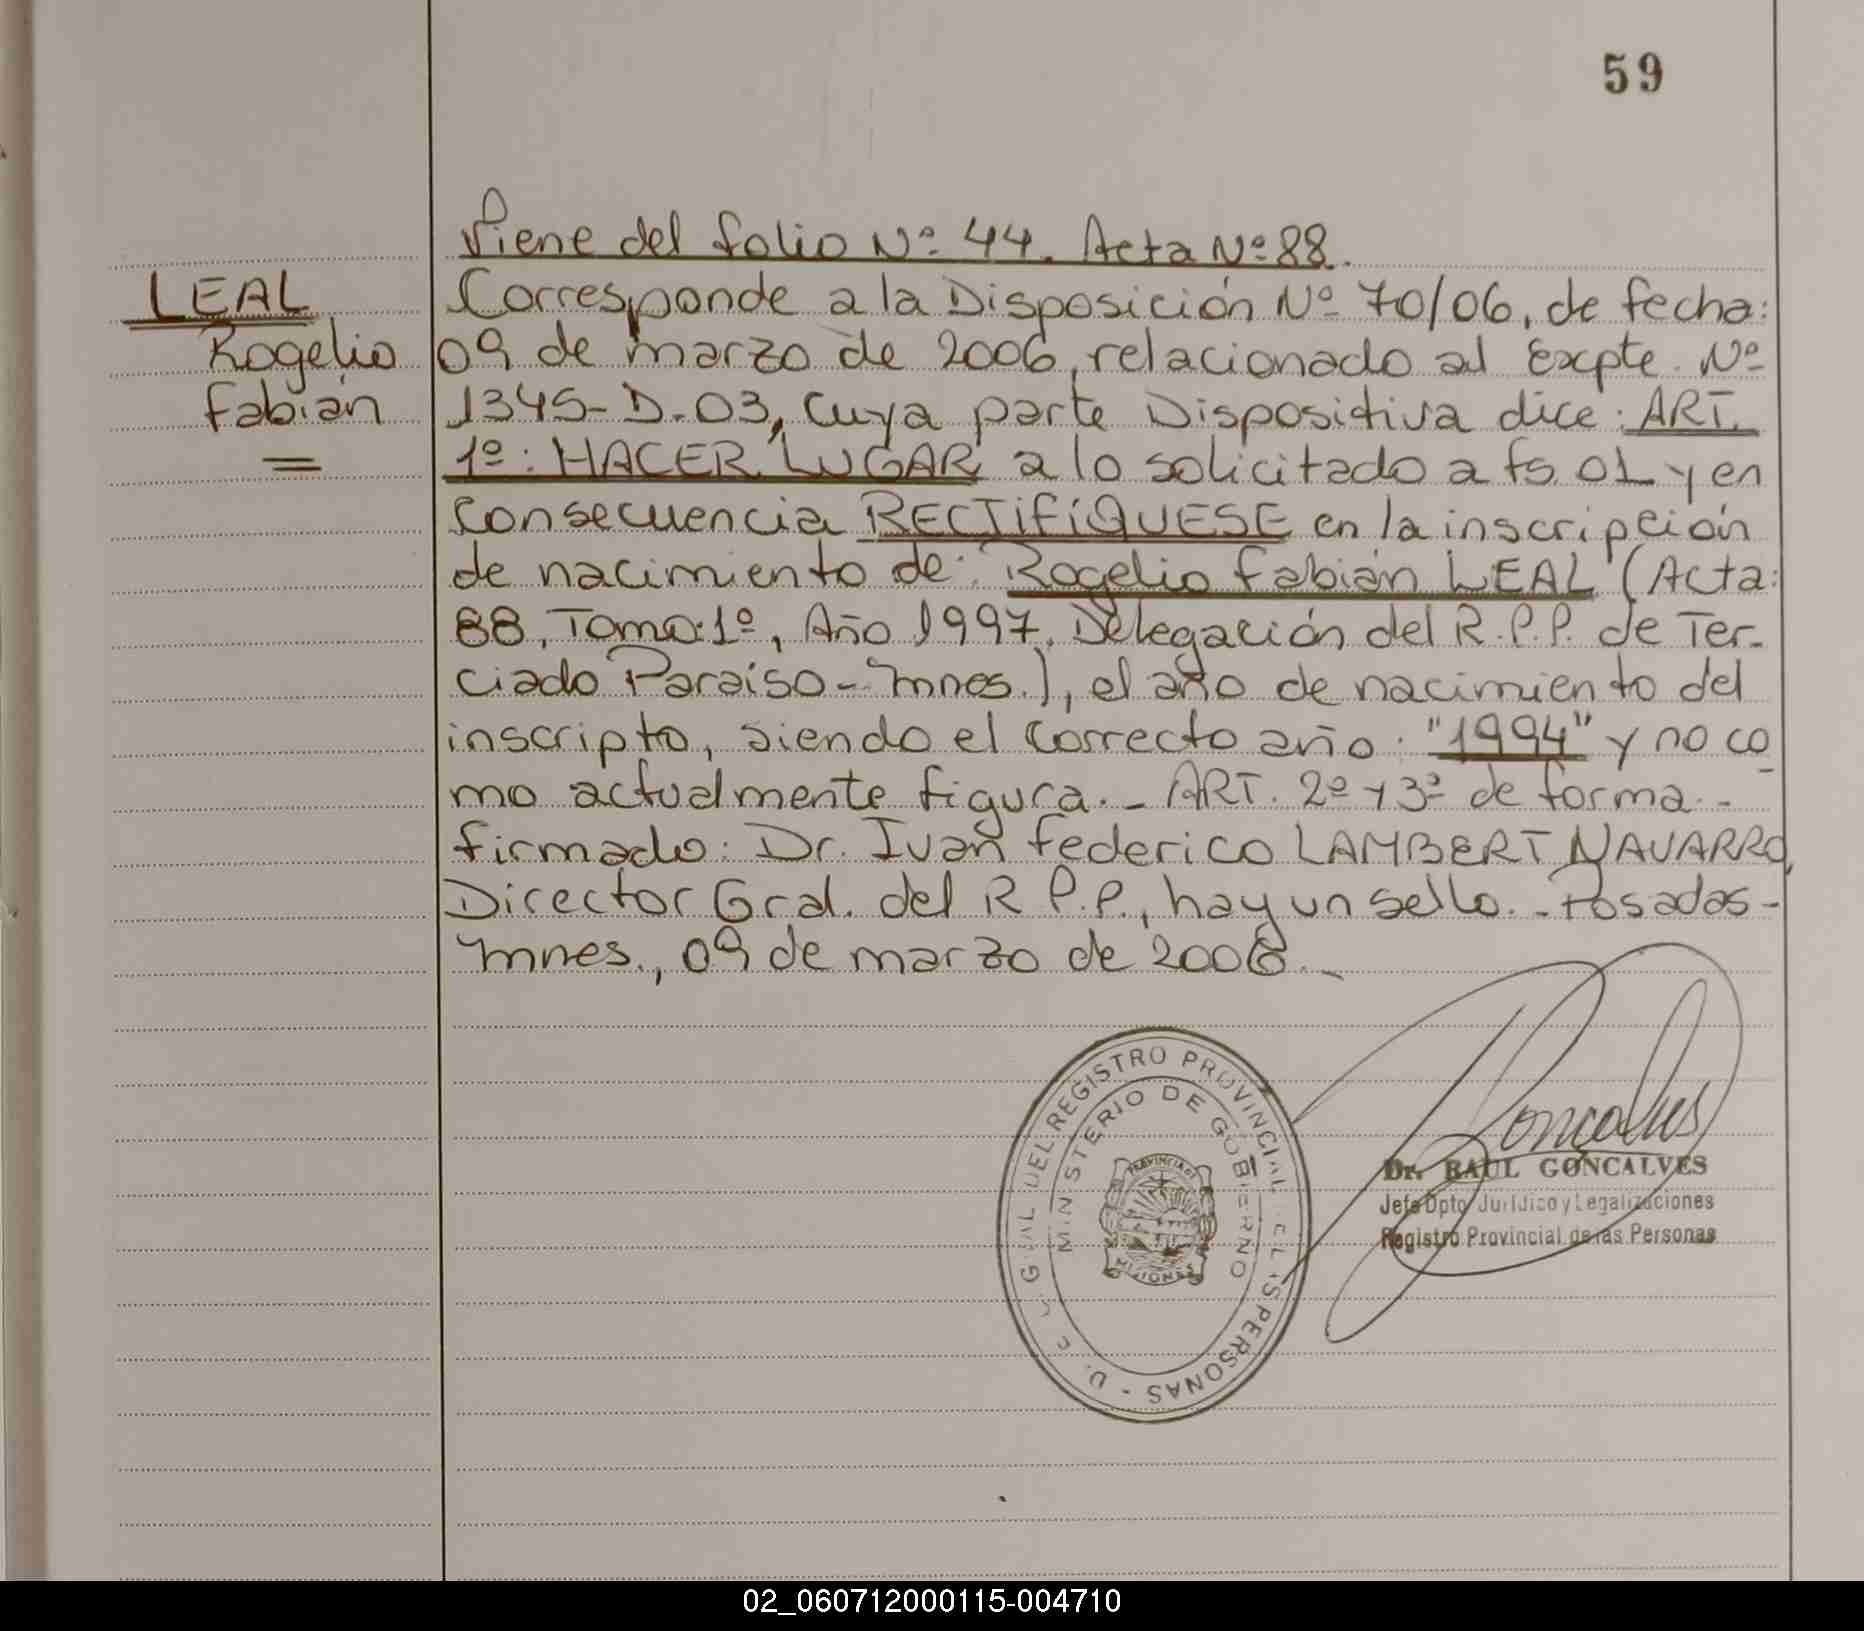 59
Viene del folio Nº 44. Acta Nº 88.
LEAL
Rogelio
Fabián
Corresponde a la Disposición Nº 70/06, de fecha:
09 de marzo de 2006, relacionado al Expte. Nº
1345-D-03, cuya parte Dispositiva dice: ART.
1º: HACER LUGAR a lo solicitado a fs. 01 y en
consecuencia RECTIFÍQUESE en la inscripción
de nacimiento de: Rogelio Fabián LEAL (Acta:
88, Tomo: 1º, Año 1997. Delegación del R.P.P. de Ter-
ciado Paraíso - Mnes.), el año de nacimiento del
inscripto, siendo el correcto año: "1994" y no co
mo actualmente figura. - ART. 2º y 3º de forma. -
firmado: Dr. Ivan Federico LAMBERT NAVARRO,
Director Gral. del R.P.P., hay un sello. - Posadas -
Mnes., 09 de marzo de 2006. -
REGISTRO PROVINCIAL DE LAS PERSONAS
MINISTERIO DE GOBIERNO
PROVINCIA DE
MISIONES
Goncalves
Dr. RAUL GONCALVES
Jefe Dpto Jurídico y Legalizaciones
Registro Provincial de las Personas
02_060712000115-004710